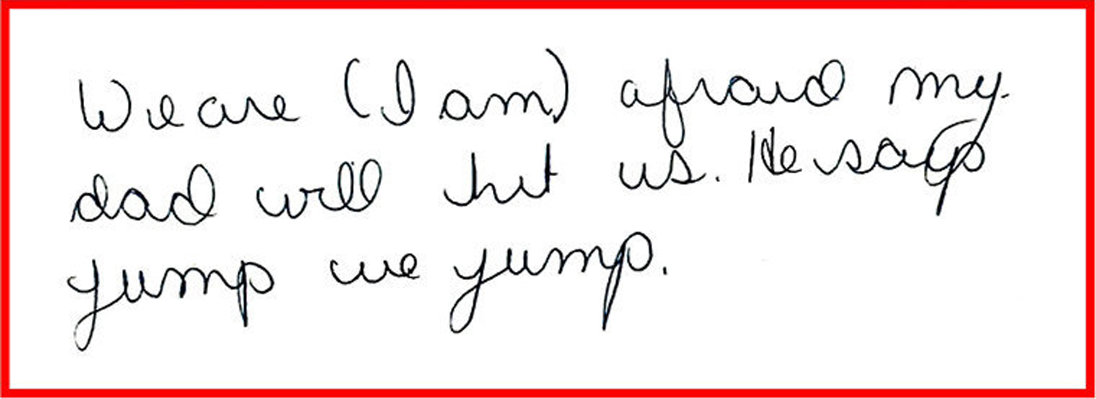 We are (I am) afraid my
dad will hit us. He says
jump we jump.